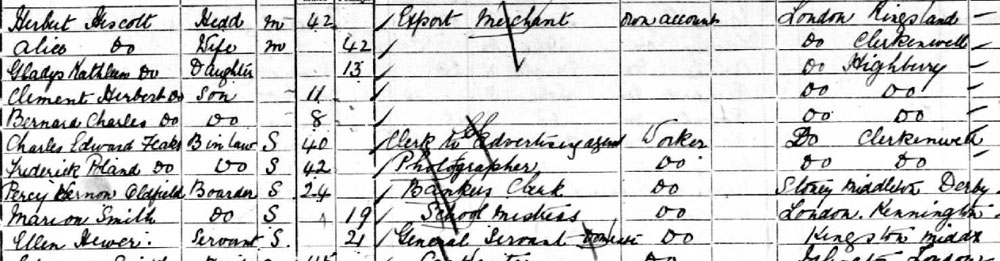 Herbert Hiscott Head m 42 Export Merchant own account London Kingsland
Alice Do Wife m 42 Do Clerkenwell
Gladys Kathleen Do Daughter 13 Do Highbury
Clement Herbert Do Son 11 Do Do
Bernard Charles Do Do 8 Do Do
Charles Edward B in law S 40 Clerk to Advertising agent Worker Do Clerkenwell
Frederick Poland Do Do S 42 Photographer Do Do Do
Percy Vernon Oldfield Boarder S 24 Bankers Clerk Do Stoney Middleton Derby
Marion Smith Do S 19 School Mistress Do London Kennington
Ellen Hewer Servant S. 21 General Servant Domestic Do Kingston Middx